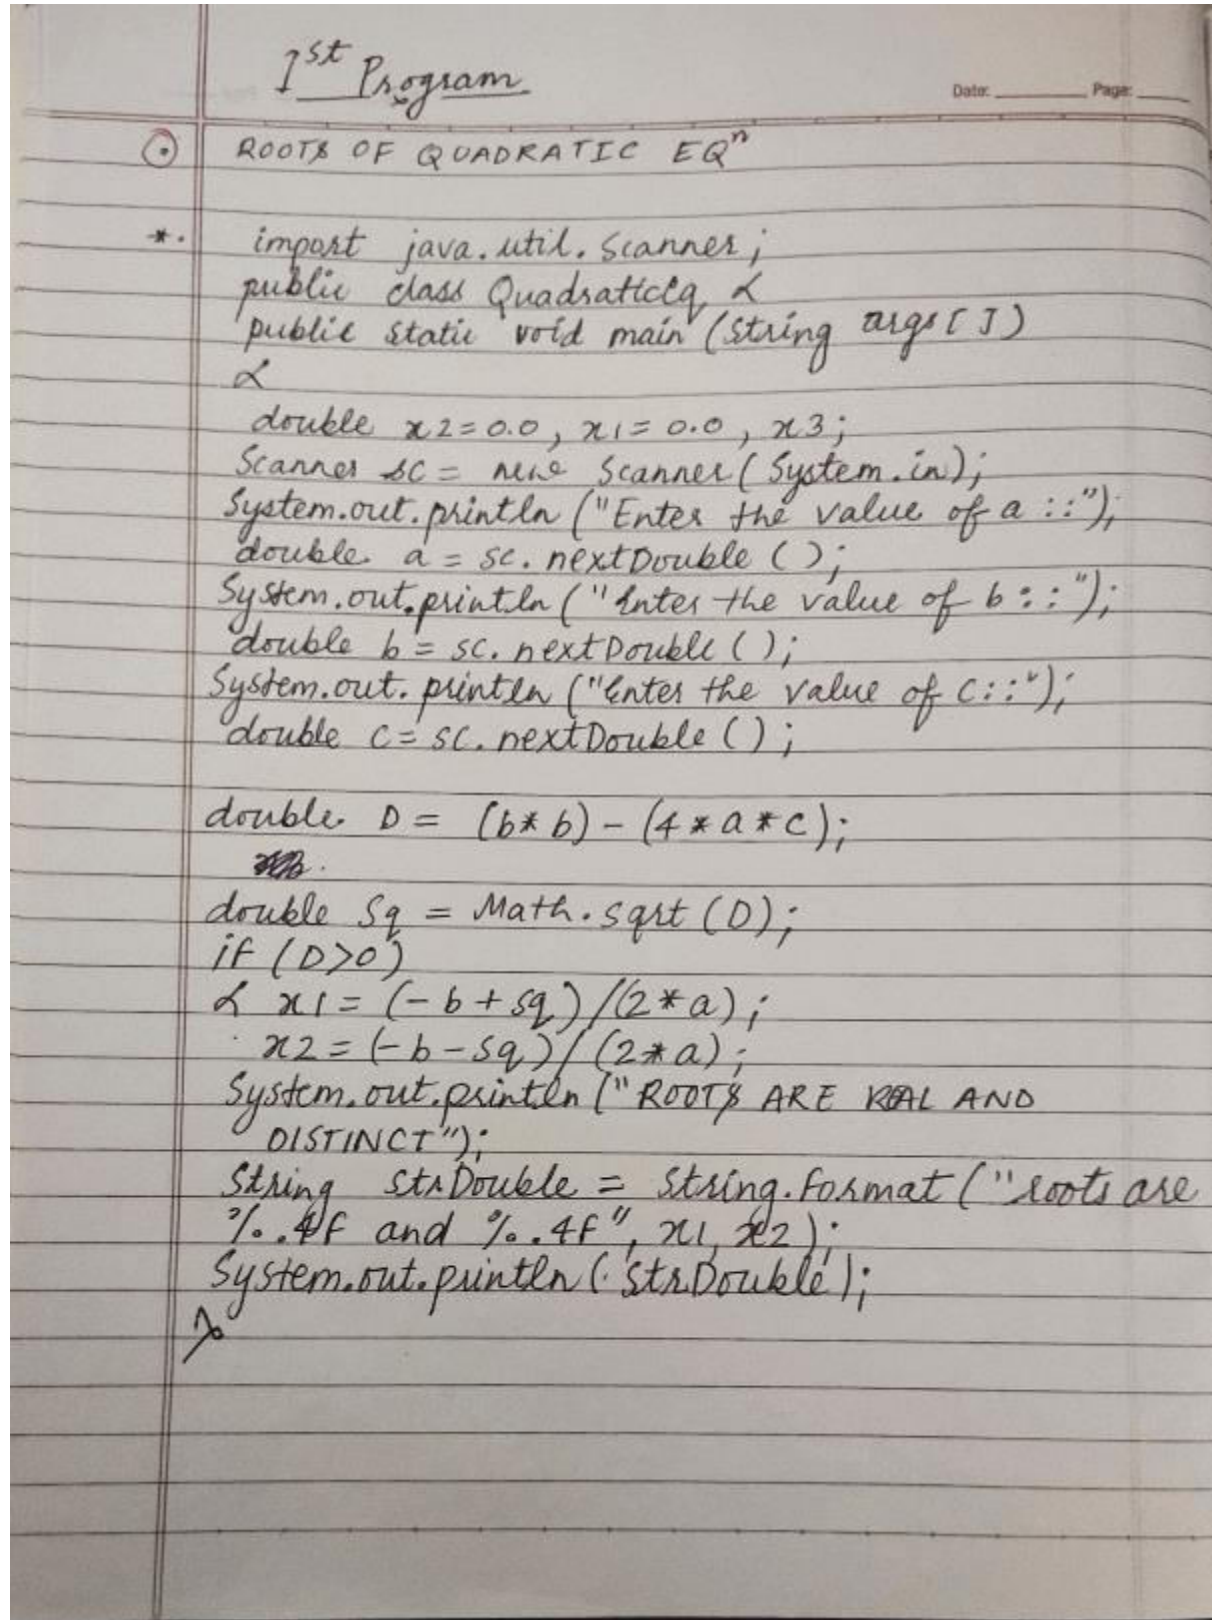 1st Program
Date: Page:
ROOTS OF QUADRATIC EQn
*. import java.util.Scanner;
public class QuadraticEq {
public static void main (String args[])
{
double x2=0.0, x1=0.0, x3;
Scanner sc = new Scanner(System.in);
System.out.println("Enter the value of a ::");
double a = sc.nextDouble();
System.out.println("Enter the value of b::");
double b = sc.nextDouble();
System.out.println("Enter the value of c::");
double c = sc.nextDouble();
double D = (b*b)-(4*a*c);
double sq = Math.sqrt(D);
if (D>0)
{ x1=(-b+sq)/(2*a);
x2=(-b-sq)/(2*a);
System.out.println("ROOTS ARE REAL AND
DISTINCT");
String strDouble = String.format("roots are
%.4f and %.4f", x1, x2);
System.out.println(strDouble);
}